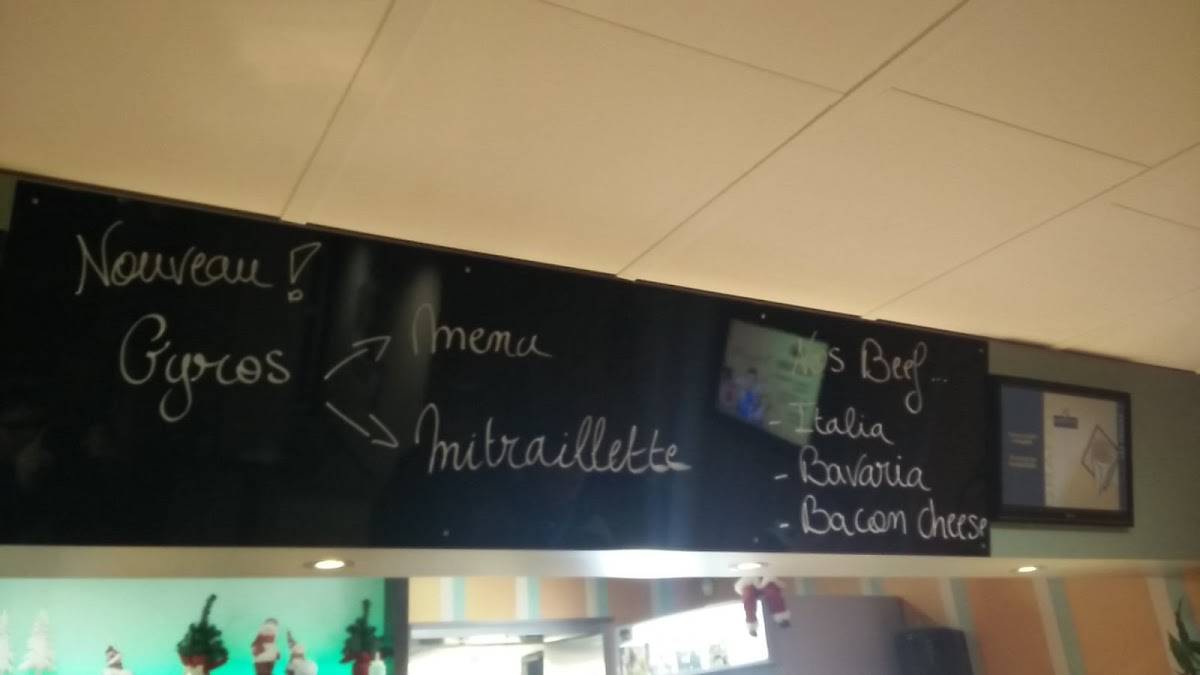 Nouveau !
Gyros
Menu
Mitraillette
Nos Beef...
- Italia
- Bavaria
- Bacon Cheese